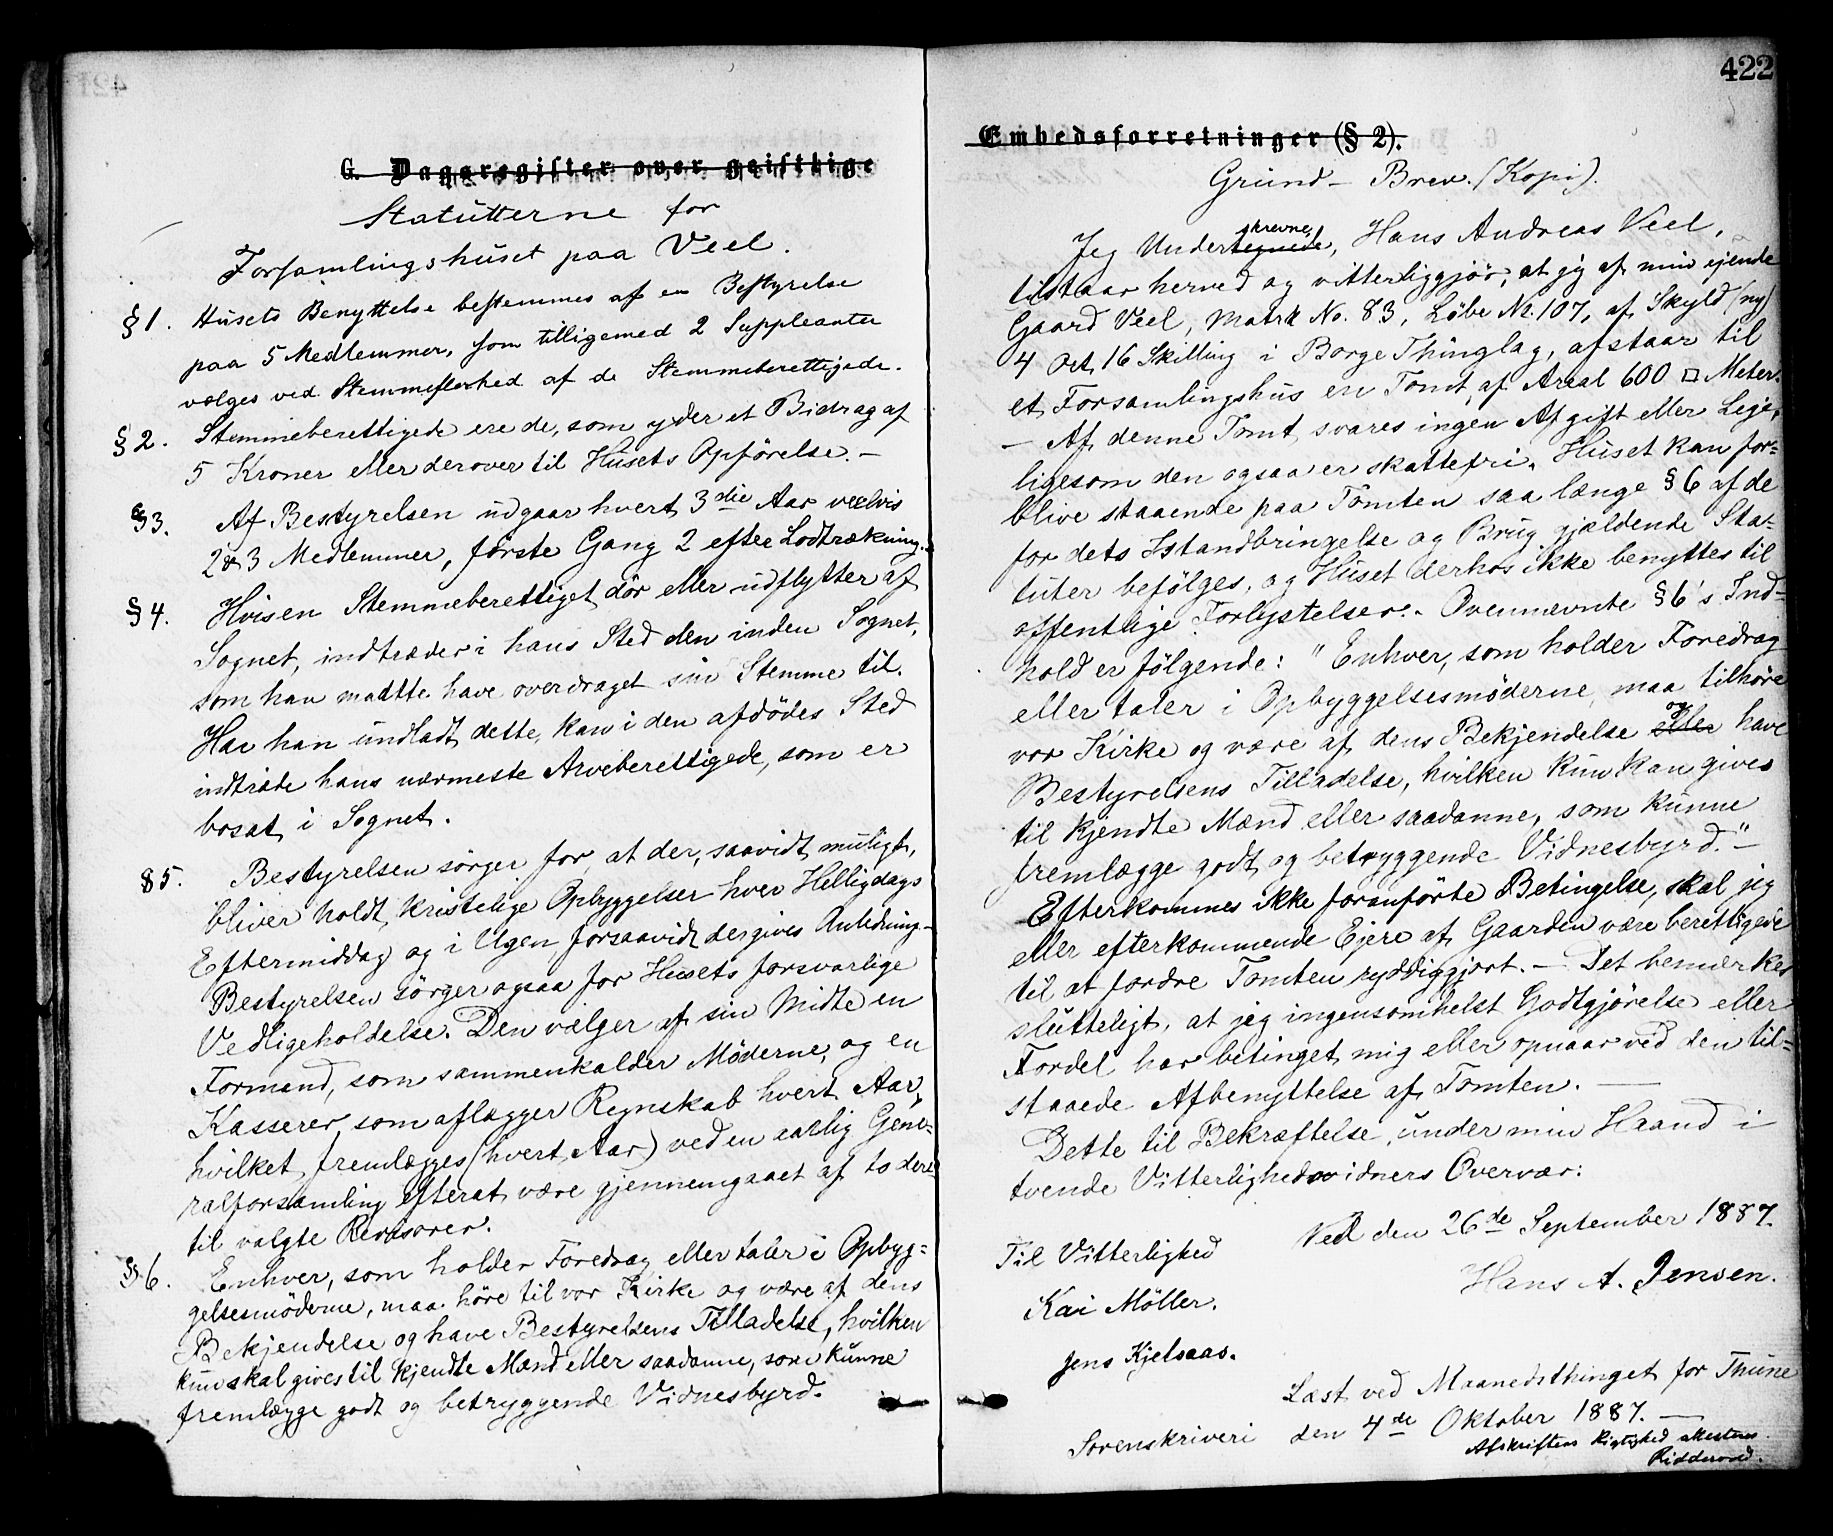 G. Dagsregister over geistlige
Statutterne for
Forsamlingshuset paa Veel.
§ 1. Husets Benyttelse bestemmes af en Bestyrelse
paa 5 Medlemmer, som tilligemed 2 Suppleanter
vælges ved Stemmeflerhed af de Stemmeberettigede.
§ 2. Stemmeberettigede ere de, som yder et Bidrag af
5 Kroner eller derover til Husets Opførelse. —
§ 3. Af Bestyrelsen udgaar hvert 3die Aar vexelvis
2 & 3 Medlemmer, første Gang 2 efter Lodtrækning. —
§ 4. Hvis en Stemmeberettiget dör eller udflytter af
Sognet, indtræder i hans Sted den inden Sognet,
som han maatte have overdraget sin Stemme til.
Har han undladt dette, kan i den afdödes Sted
indträde hans nærmeste Arveberettigede, som er
bosat i Sognet.
§ 5. Bestyrelsen sörger for at der, saavidt muligt,
bliver holdt kristelige Opbyggelser hver Helligdags
Eftermiddag og i Ugen, forsaavidt der gives Anledning. —
Bestyrelsen sörger ogsaa for Husets forsvarlige
Vedligeholdelse. Den vælger af sin Midte en
Formand, som sammenkalder Möderne, og en
Kasserer, som aflægger Regnskab hvert Aar,
hvilket fremlægges (hvert Aar) ved en aarlig Gene-
ralforsamling efter at være gjennemgaaet af to der-
til valgte Revisorer.
§ 6. Enhver, som holder Foredrag eller taler i Opbyg-
gelsesmöderne, maa höre til vor Kirke og være af dens
Bekjendelse og have Bestyrelsens Tilladelse, hvilken
kun skal gives til kjendte Mænd eller saadanne, som kunne
fremlægge godt og betryggende Vidnesbyrd.
422
Embedsforretninger (§ 2).
Grund - Brev. (Kopi).
skrevne
Jeg Undertegnede, Hans Andreas Veel,
tilstaar herved og vitterliggjör, at jeg af min ejende
Gaard Veel, Matrk No. 83, Löbe Nr. 107, af Skyld (ny)
4 Ort 16 Skilling i Borge Thinglag, afstaar til
et Forsamlingshus en Tomt af Areal 600 □ Meter.
— Af denne Tomt svares ingen Afgift eller Leje,
ligesom den ogsaa er skattefri. Huset kan for-
blive staaende paa Tomten saa længe § 6 af de
for dets Istandbringelse og Brug gjældende Sta-
tuter befölges, og Huset derhos ikke benyttes til
offentlige Forlystelser. - Ovennævnte § 6's Ind-
hold er fölgende: "Enhver, som holder Foredrag
eller taler i Opbyggelsesmöderne, maa tilhöre
og
vor Kirke og være af dens Bekjendelse eller have
Bestyrelsens Tilladelse, hvilken kun kan gives
til kjendte Mænd eller saadanne, som kunne
fremlægge godt og betryggende Vidnesbyrd." —
Efterkommes ikke foranförte Betingelse, skal jeg
eller efterkommende Ejere af Gaarden være berettigede
til at fordre Tomten ryddiggjort. — Det bemærkes
slutteligt, at jeg ingensomhelst Godtgjörelse eller
Fordel har betinget mig eller opnaar ved den til-
staaede Afbenyttelse af Tomten. —
Dette til Bekræftelse under min Haand i
tvende Vitterlighedsvidners Overvær:
Veel den 26de September 1887.
Til Vitterlighed
Hans A. Jensen.
Kai Möller.
Jens Kjelsaas.
Læst ved Maanedsthinget for Thune
Sorenskriveri den 4de Oktober 1887. —
Afskriftens Rigtighed attesteres